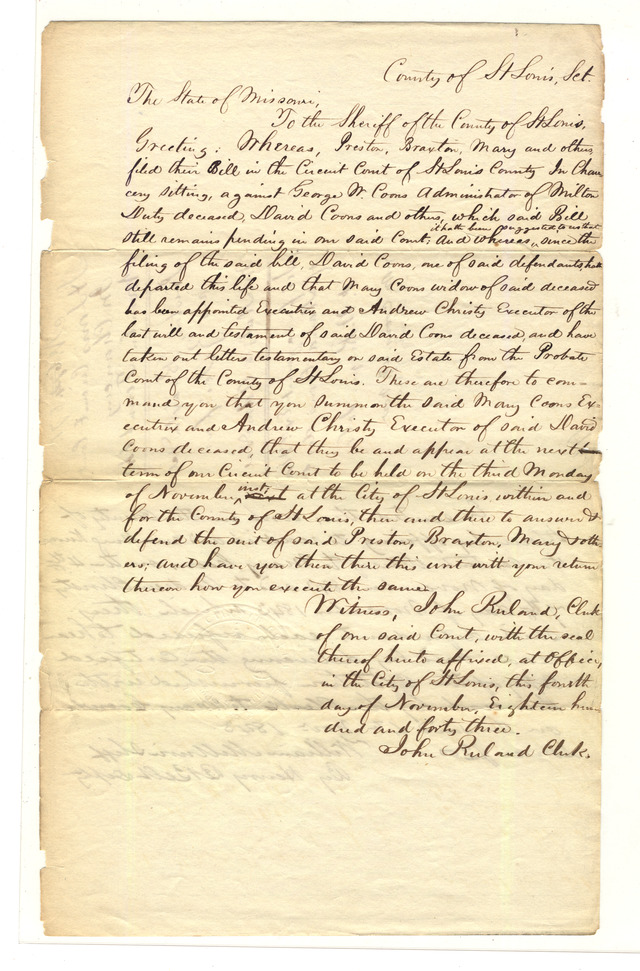 County of St Louis, Sct.
The State of Missouri,
To the Sheriff of the County of St Louis,
Greeting: Whereas, Preston, Braxton, Mary and others
filed their Bill in the Circuit Court of St Louis County In Chan
cery sitting, against George W. Coons Administrator of Milton
Duty deceased, David Coons and others, which said Bill
it hath been suggested to us that
still remains pending in our said Court: And Whereas, since the
filing of the said bill, David Coons, one of said defendants hath
departed this life and that Mary Coons widow of said deceased
has been appointed Executrix and Andrew Christy Executor of the
last will and testament of said David Coons deceased, and have
taken out letters testamentary on said Estate from the Probate
Court of the County of St Louis. These are therefore to com-
mand you that you summon the said Mary Coons Ex-
ecutrix and Andrew Christy Executor of said David
Coons deceased, that they be and appear at the next
term of our Circuit Court to be held on the third Monday
of November inst. at the City of St Louis, within and
for the County of St Louis, then and there to answer &
defend the suit of said Preston, Braxton, Mary & oth
ers; and have you then there this writ with your return
thereon how you execute the same.
Witness, John Ruland, Clerk
of our said Court, with the seal
thereof hereto affixed, at Office,
in the City of St Louis, this fourth
day of November, Eighteen hun-
dred and forty three.
John Ruland Clerk.